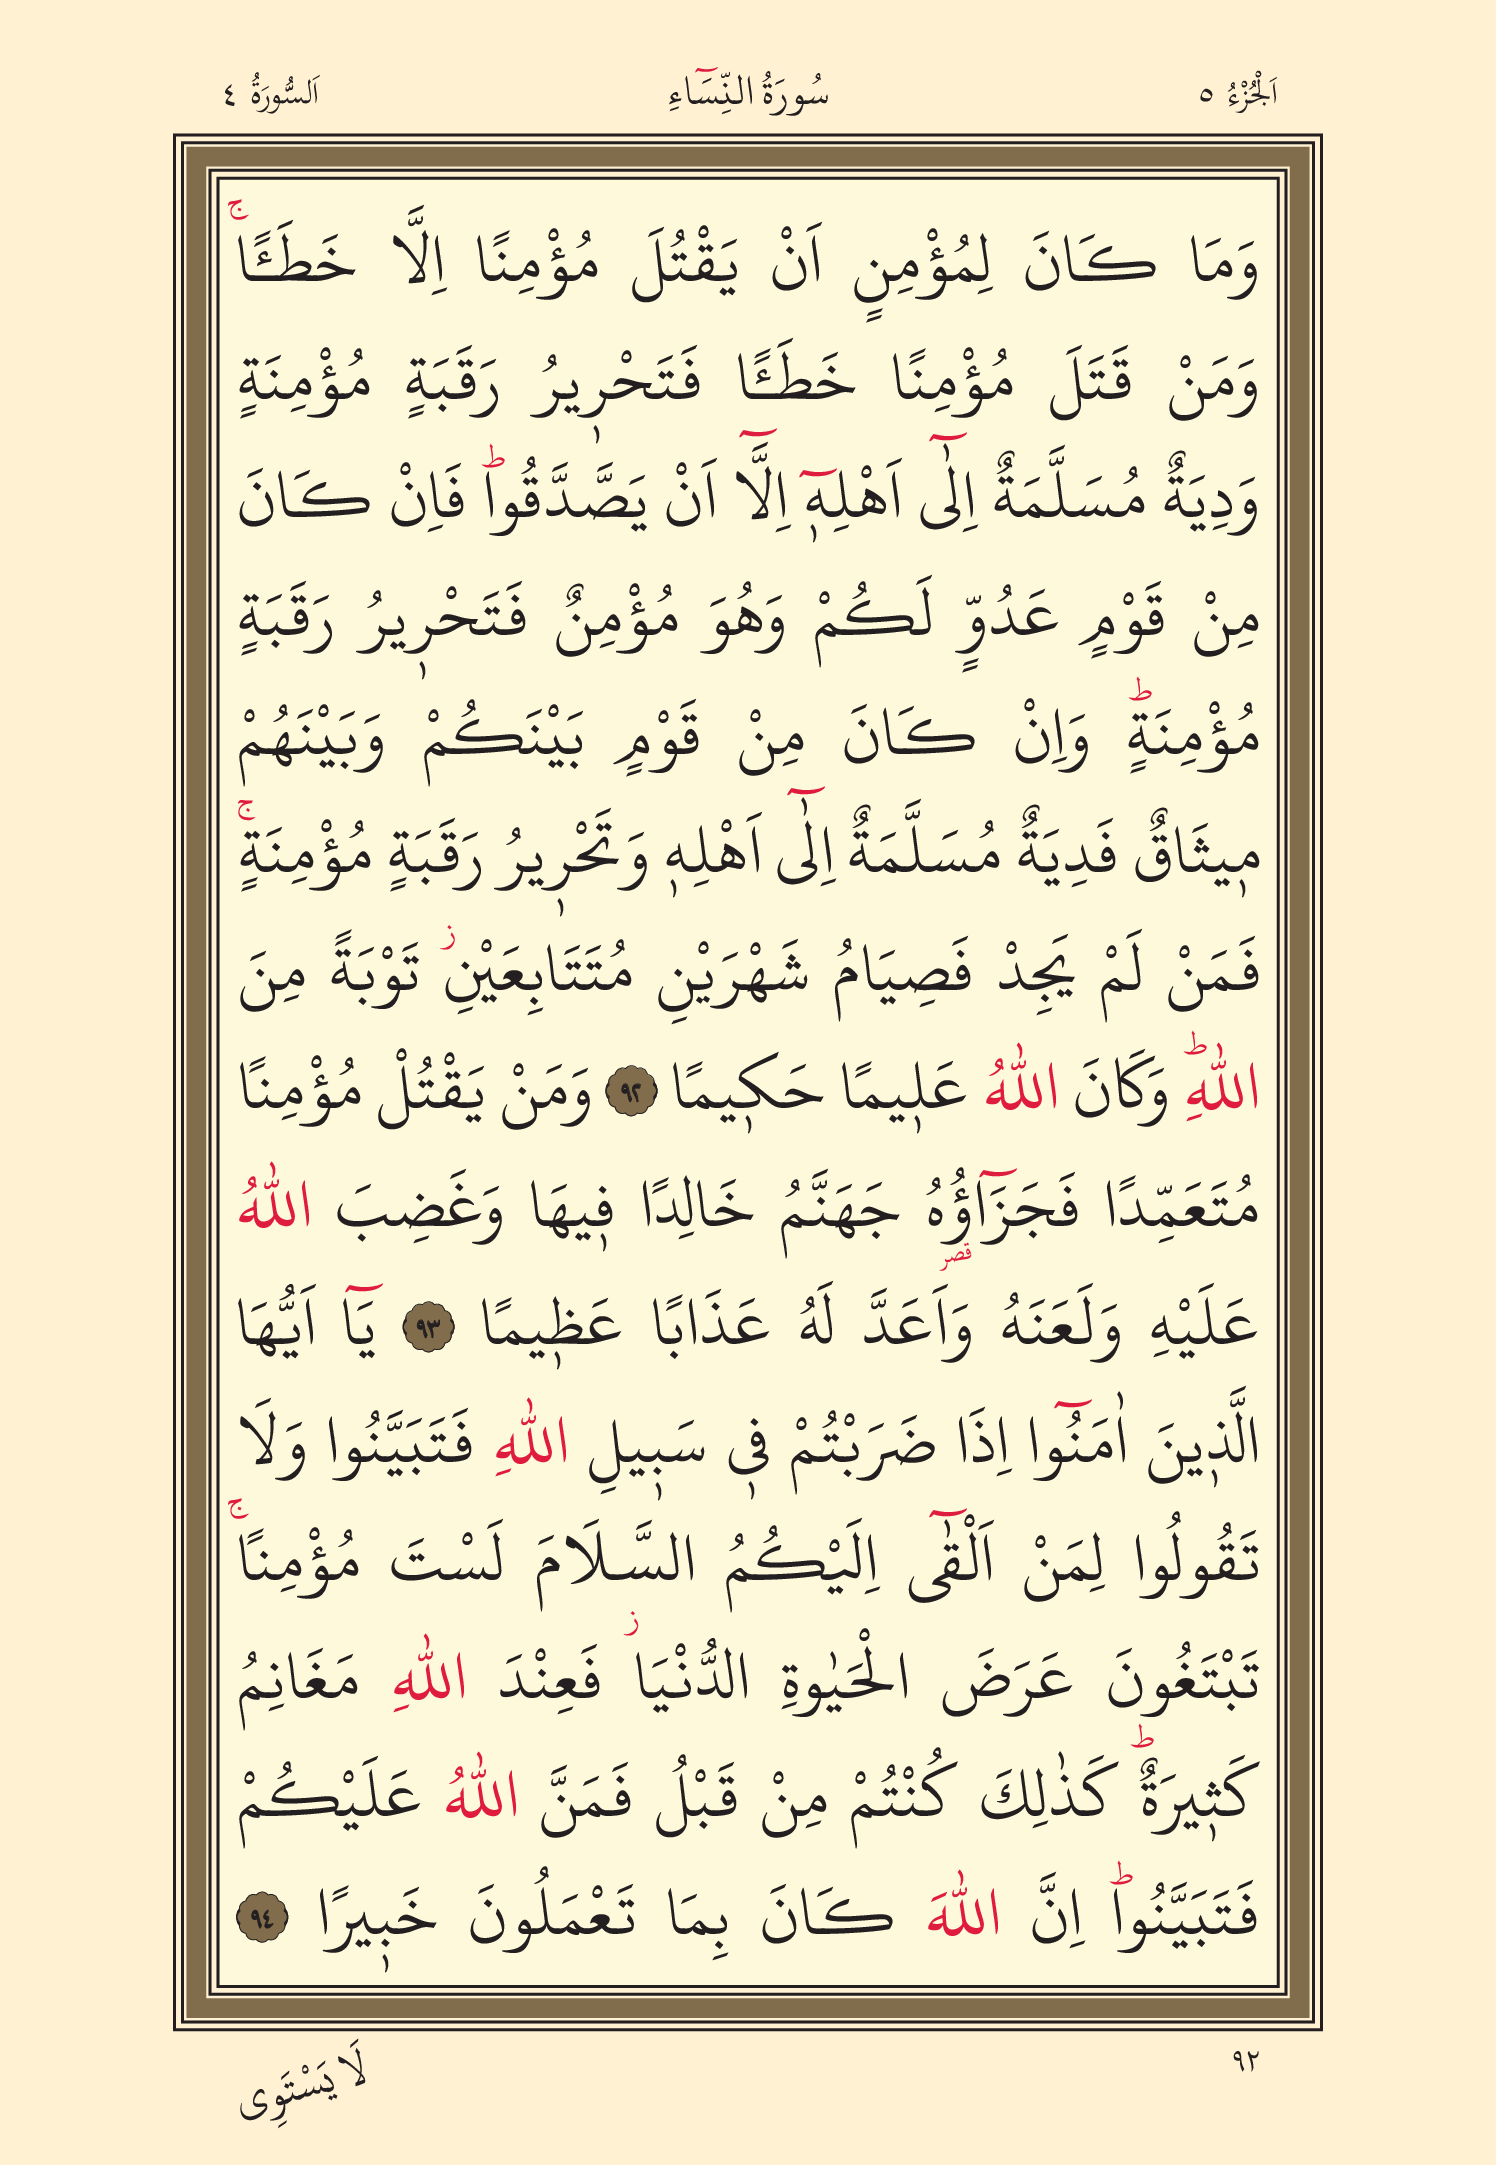 اَلْجُزْءُ ٥ سُورَةُ النِّسَٓاءِ اَلسُّورَةُ ٤
وَمَا كَانَ لِمُؤْمِنٍ اَنْ يَقْتُلَ مُؤْمِنًا اِلَّا خَطَـًٔاۚ
وَمَنْ قَتَلَ مُؤْمِنًا خَطَـًٔا فَتَحْرٖيرُ رَقَبَةٍ مُؤْمِنَةٍ
وَدِيَةٌ مُسَلَّمَةٌ اِلٰٓى اَهْلِهٖٓ اِلَّٓا اَنْ يَصَّدَّقُواؕ فَاِنْ كَانَ
مِنْ قَوْمٍ عَدُوٍّ لَكُمْ وَهُوَ مُؤْمِنٌ فَتَحْرٖيرُ رَقَبَةٍ
مُؤْمِنَةٍؕ وَاِنْ كَانَ مِنْ قَوْمٍ بَيْنَكُمْ وَبَيْنَهُمْ
مٖيثَاقٌ فَدِيَةٌ مُسَلَّمَةٌ اِلٰٓى اَهْلِهٖ وَتَحْرٖيرُ رَقَبَةٍ مُؤْمِنَةٍۚ
فَمَنْ لَمْ يَجِدْ فَصِيَامُ شَهْرَيْنِ مُتَتَابِعَيْنِؗ تَوْبَةً مِنَ
اللّٰهِؕ وَكَانَ اللّٰهُ عَلٖيمًا حَكٖيمًا ٩٢ وَمَنْ يَقْتُلْ مُؤْمِنًا
مُتَعَمِّدًا فَجَزَٓاؤُ۬هُ جَهَنَّمُ خَالِدًا فٖيهَا وَغَضِبَ اللّٰهُ
قصر
عَلَيْهِ وَلَعَنَهُ وَاَعَدَّ لَهُ عَذَابًا عَظٖيمًا ٩٣ يَٓا اَيُّهَا
الَّذٖينَ اٰمَنُٓوا اِذَا ضَرَبْتُمْ فٖى سَبٖيلِ اللّٰهِ فَتَبَيَّنُوا وَلَا
تَقُولُوا لِمَنْ اَلْقٰٓى اِلَيْكُمُ السَّلَامَ لَسْتَ مُؤْمِنًاۚ
تَبْتَغُونَ عَرَضَ الْحَيٰوةِ الدُّنْيَاؗ فَعِنْدَ اللّٰهِ مَغَانِمُ
كَثٖيرَةٌؕ كَذٰلِكَ كُنْتُمْ مِنْ قَبْلُ فَمَنَّ اللّٰهُ عَلَيْكُمْ
فَتَبَيَّنُواؕ اِنَّ اللّٰهَ كَانَ بِمَا تَعْمَلُونَ خَبٖيرًا ٩٤
٩٢ لَا يَسْتَوِى